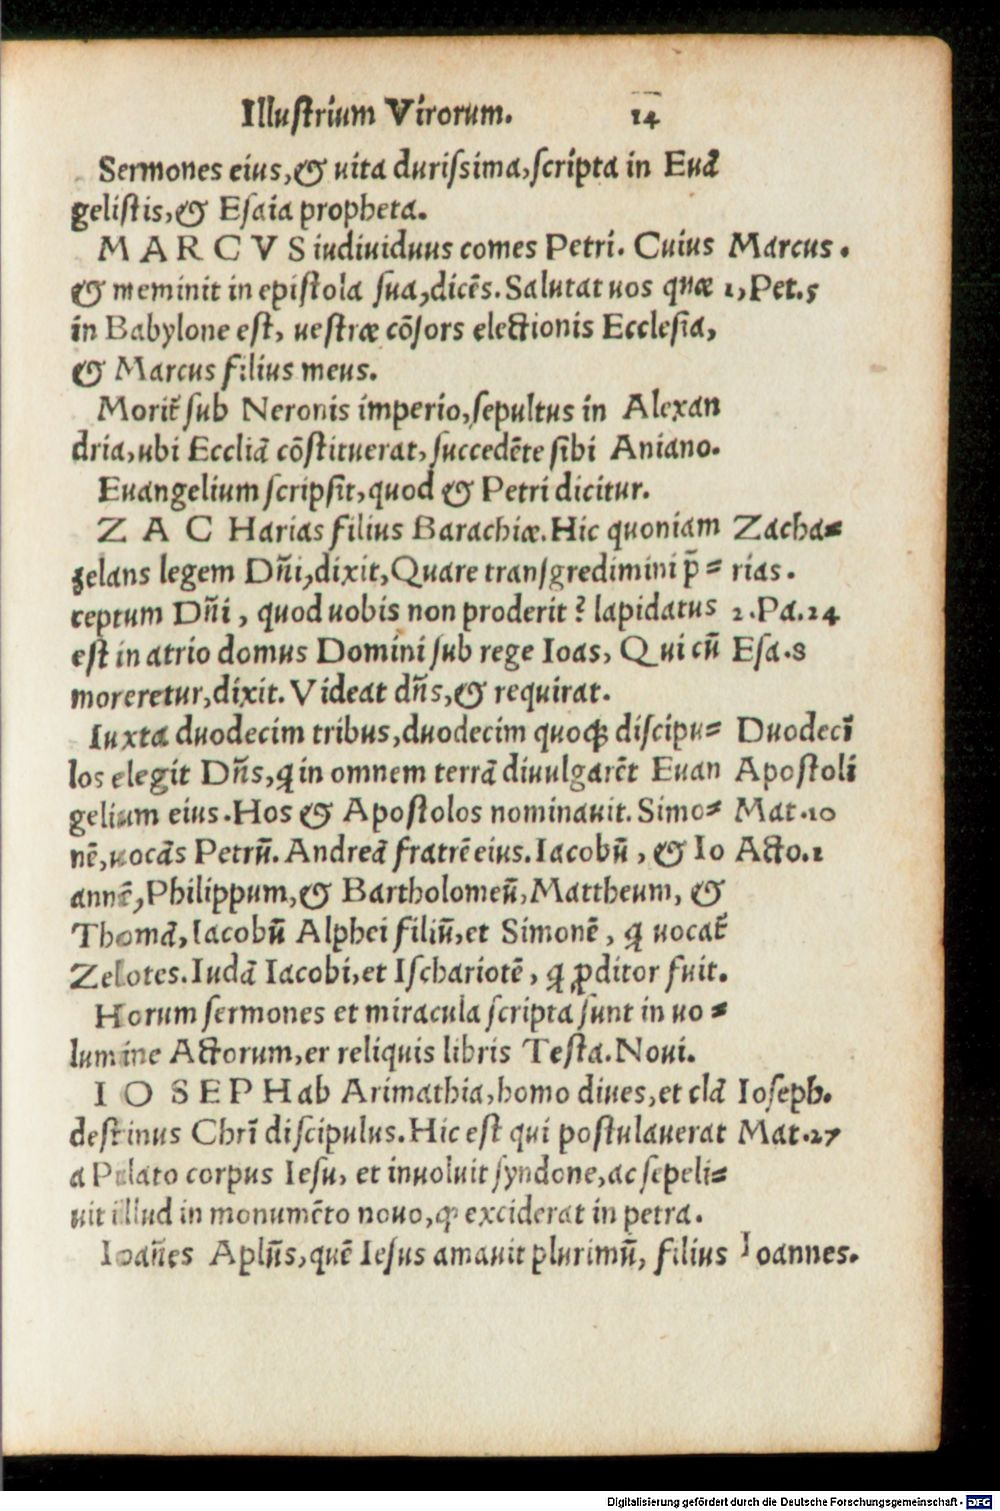 Illustrium Virorum. 14
Sermones eius, & uita durissima, scripta in Euā
gelistis, & Esaia propheta.
MARCVS iudiuiduus comes Petri. Cuius Marcus.
& meminit in epistola sua, dicēs. Salutat uos quæ 1, Pet. 5
in Babylone est, uestræ cōsors electionis Ecclesia,
& Marcus filius meus.
Morit̃ sub Neronis imperio, sepultus in Alexan
dria, ubi Eccliā cōstituerat, succedēte sibi Aniano.
Euangelium scripsit, quod & Petri dicitur.
ZAC Harias filius Barachiæ. Hic quoniam Zacha=
zelans legem Dñi, dixit, Quare transgredimini p̄= rias.
ceptum Dñi, quod uobis non proderit? lapidatus 2. Pa. 24
est in atrio domus Domini sub rege Ioas, Qui cū Esa. 8
moreretur, dixit. Videat dñs, & requirat.
Iuxta duodecim tribus, duodecim quoqꝫ discipu= Duodecī
los elegit Dñs, ꝗ in omnem terrā diuulgarēt Euan Apostoli
gelium eius. Hos & Apostolos nominauit. Simo= Mat. 10
nē, uocās Petrū. Andreā fratrē eius. Iacobū, & Io Acto. 1
annē, Philippum, & Bartholomeū, Mattheum, &
Thomā, Iacobū Alphei filiū, et Simonē, ꝗ uocat̃
Zelotes. Iudā Iacobi, et Ischariotē, ꝗ ꝓditor fuit.
Horum sermones et miracula scripta sunt in uo=
lumine Actorum, er reliquis libris Testa. Noui.
IOSEPH ab Arimathia, homo diues, et clā Ioseph.
destinus Chrī discipulus. Hic est qui postulauerat Mat. 27
a Pilato corpus Iesu, et inuoluit syndone, ac sepeli=
uit illud in monumēto nouo, ꝙ exciderat in petra.
Ioañes Aplūs, quē Iesus amauit plurimū, filius Ioannes.
Digitalisierung gefördert durch die Deutsche Forschungsgemeinschaft - DFG